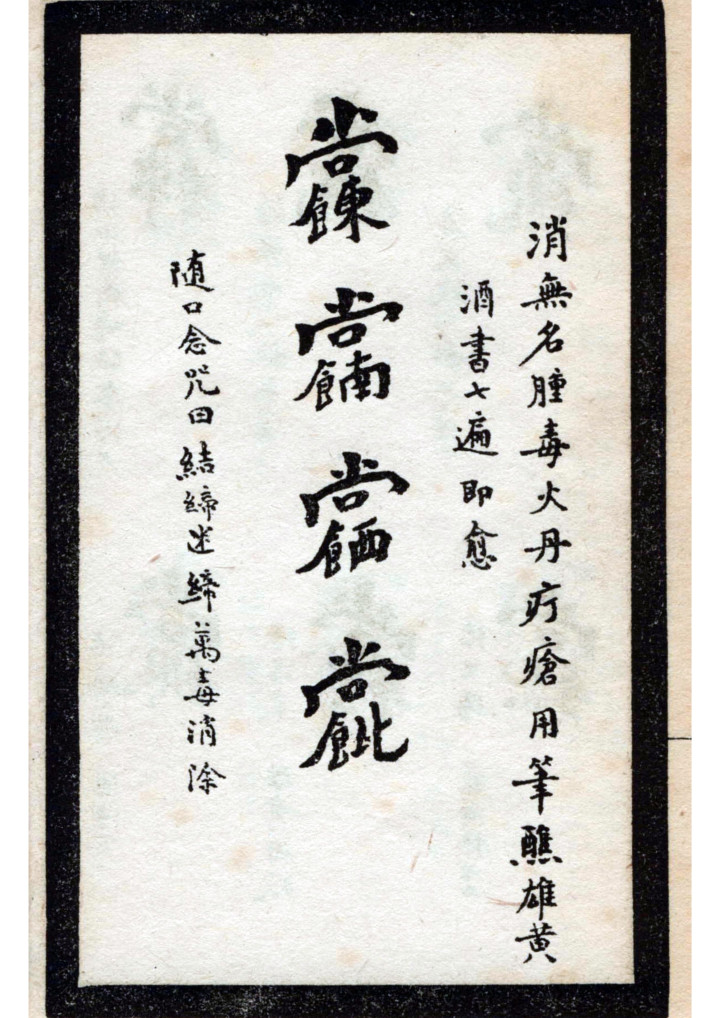 消無名腫毒火丹疔瘡用筆醮雄黃
酒書七遍即愈
随口念咒曰結締迷締萬毒消除